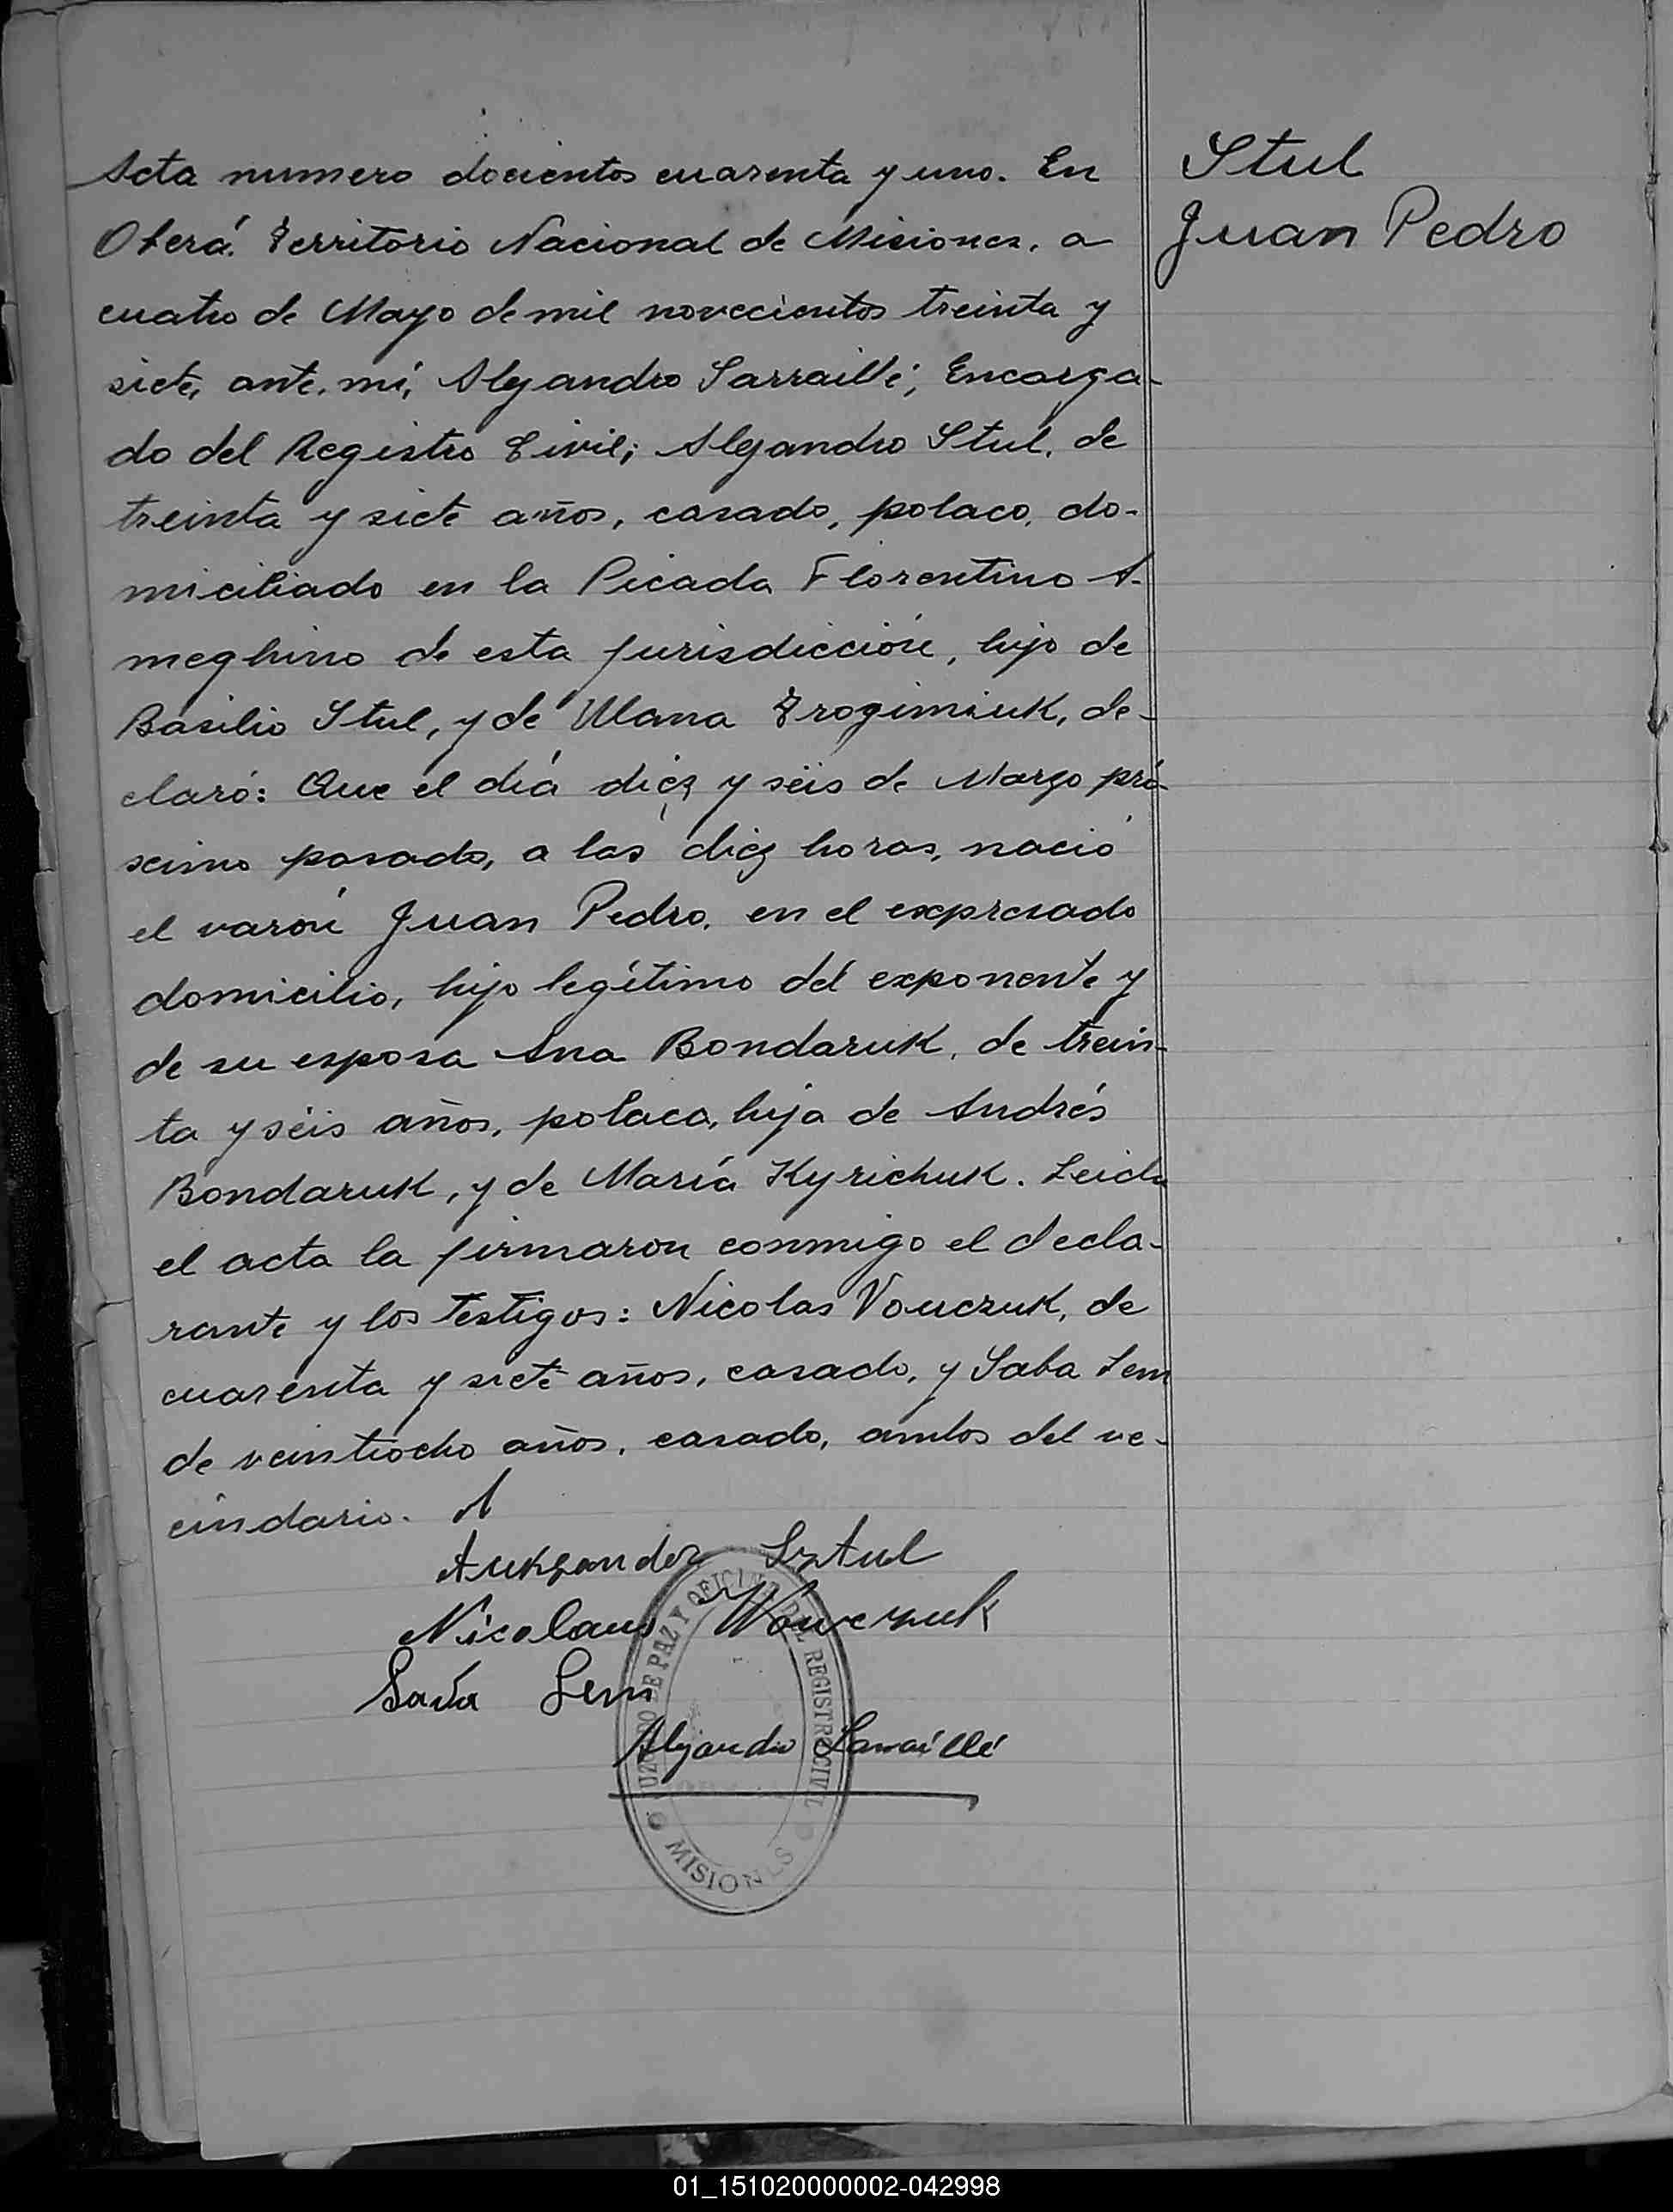 Acta numero docientos cuarenta y uno. En
Oberá. Territorio Nacional de Misiones, a
cuatro de Mayo de mil novecientos treinta y
siete, ante, mí, Alejandro Sarraillé, Encarga-
do del Registro Civil; Alejandro Stul, de
treinta y siete años, casado, polaco, do-
miciliado en la Picada Florentino A-
meghino de esta jurisdicción, hijo de
Basilio Stul, y de Ulana Trogimiuk, de-
claró: Que el día diez y seis de Marzo pró-
ximo pasado, a las diez horas, nació
el varón Juan Pedro, en el expresado
domicilio, hijo legítimo del exponente y
de su esposa Ana Bondaruk, de trein-
ta y seis años, polaca, hija de Andrés
Bondaruk, y de María Kyrichuk. Leida
el acta la firmaron conmigo el decla-
rante y los testigos: Nicolas Vouczuk, de
cuarenta y siete años, casado, y Saba Sem
de veintiocho años, casado, ambos del ve-
cindario. A
Sztul
Nicolaus Wouczuk
Sava Sem
Alejandro Sarraillé
JUZGADO DE PAZ Y OFICINA DEL REGISTRO CIVIL
MISIONES
Stul
Juan Pedro
01_151020000002-042998